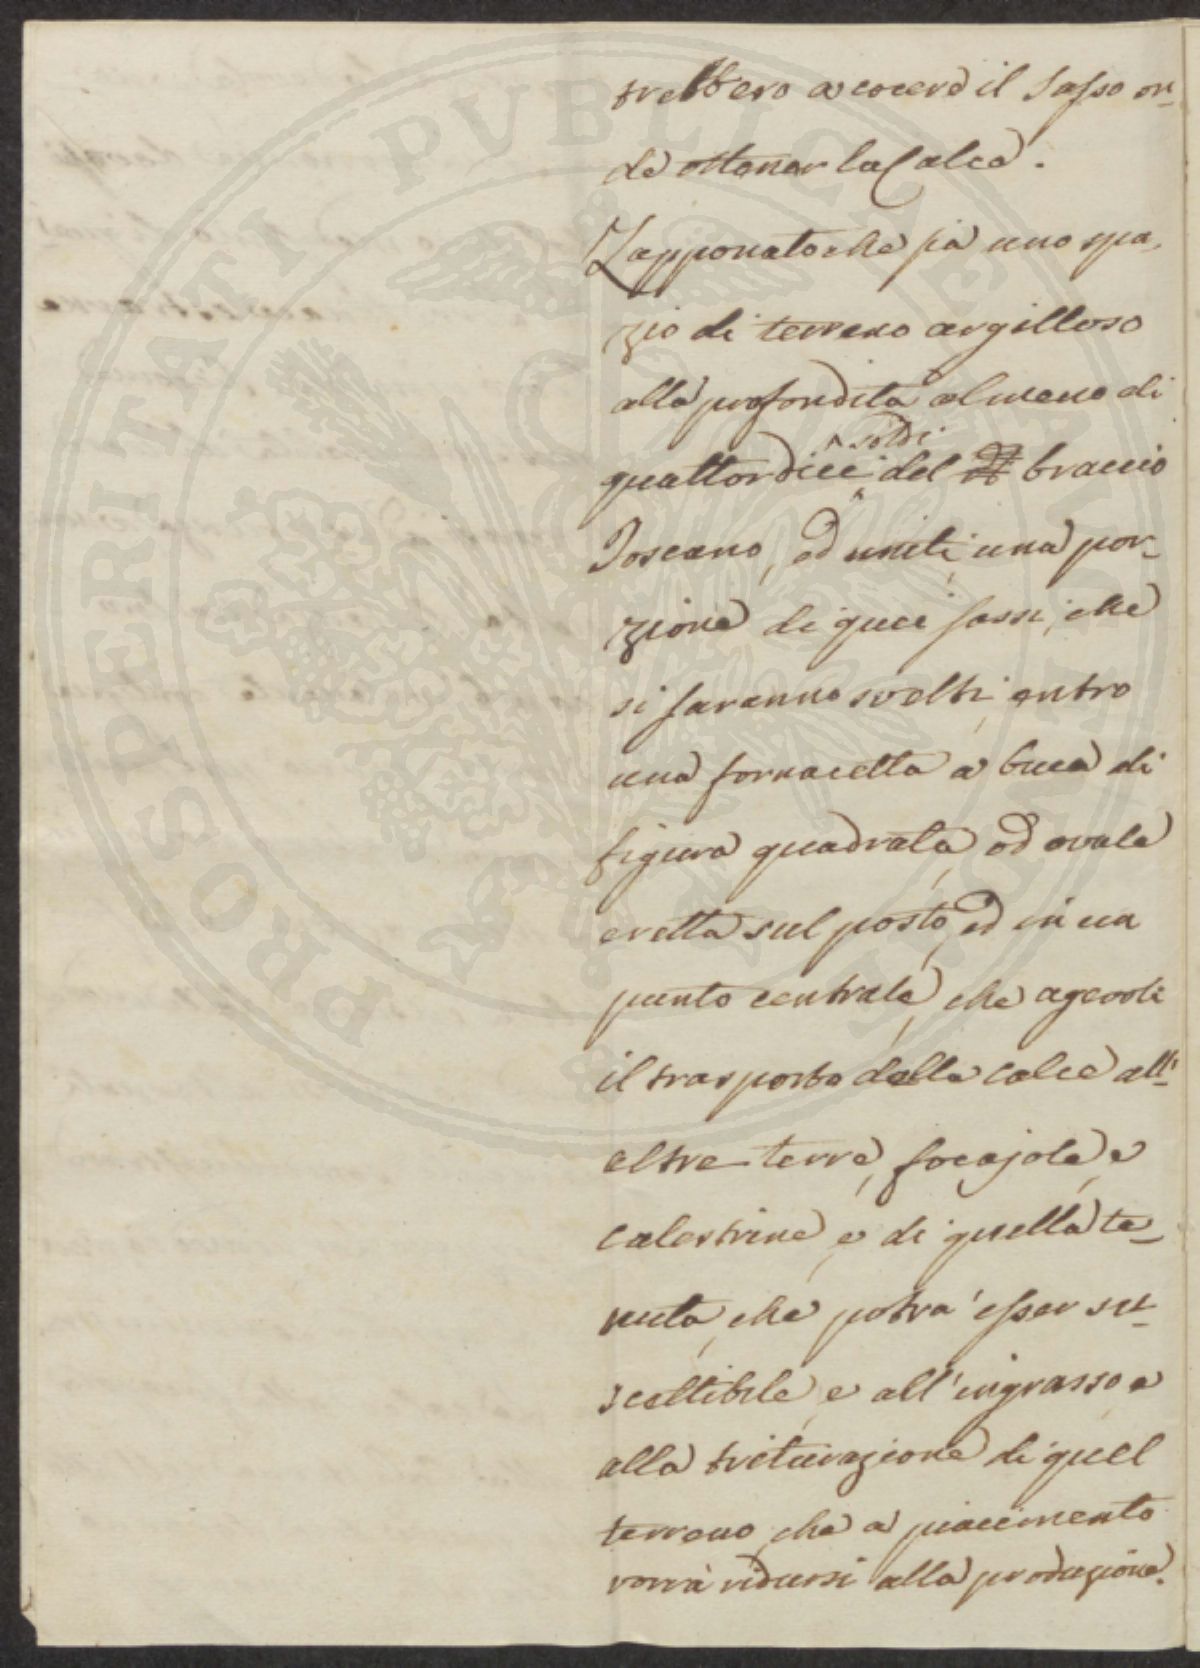 trebbero a cocere il Sasso on-
de ottener la Calce.
Zapponato che sia uno spa-
zio di terreno argilloso
alla profondità almeno di
quattordici soldi del braccio
Toscano, ed uniti, una por-
zione di quei sassi, che
si saranno svelti, entro
una fornacetta a buca di
figura quadrata, od ovale
eretta sul posto, ed in un
punto centrale, che agevoli
il trasporto della calce all'
altre terre, focajole, e
calestrine, e di quella te-
nuta, che potrà esser su-
scettibile, e all'ingrasso e
alla triturazione di quel
terreno, che a piacimento
vorrà ridursi alla produzione.
PROSPERITATI PUBLICAE AUGENDAE